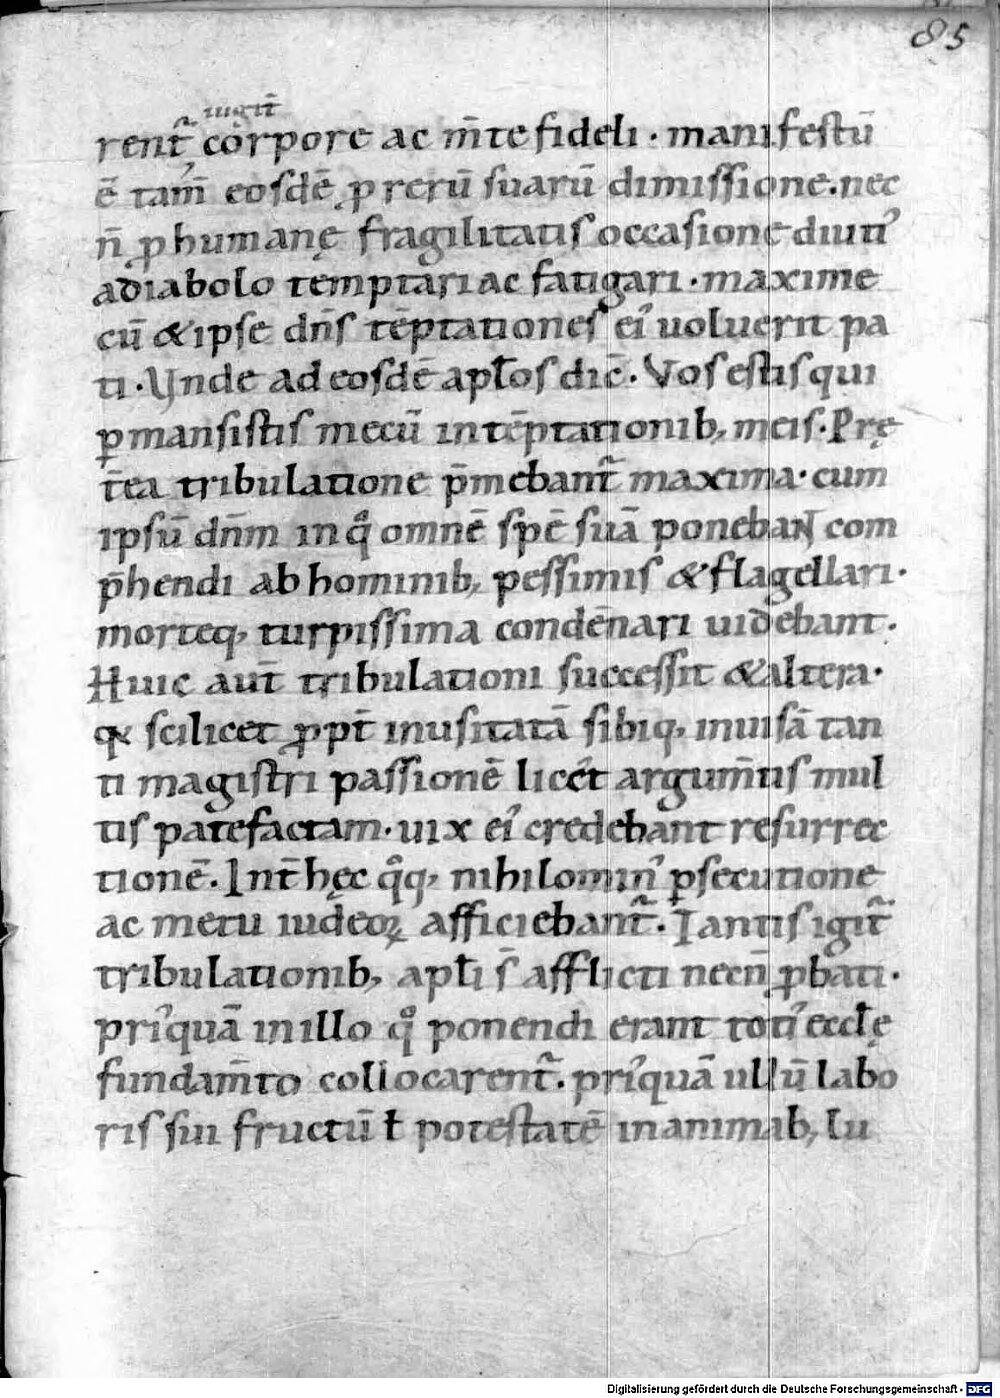 85
iugit̄
rent᷑ corpore ac m̄te fideli · manifestū
ē tam̄ eosdē ꝓ rerū suarū dimissione. nec
n̄ ꝓ humanę fragilitatis occasione diuti᾽
a diabolo temptari ac fatigari · maxime
cū & ipse dn̄s tēptationes ei᾽ uoluerit pa
ti · Unde ad eosdē apƚos dic̄ · Vos estis qui
ꝑmansistis mecū in tēptationib, meis · Prę
t̄ea tribulatione p̄mebant᷑ maxima · cum
ipsū dn̄m in qͦ omnē spē suā ponebaɴᴛ com
p̄hendi ab hominib, pessimis & flagellari ·
morteq, turpissima condēnari uidebant ·
Huic aut̄ tribulationi successit & altera ·
qꝫ scilicet ꝓpt̄ inusitatā sibiq, inuisā tan
ti magistri passionē licet argum̄tis mul
tis patefactam · uix ei᾽ credebant resurrec
tionē · Int̄ hęc qͦq, nihilomin᾽ ꝑsecutione
ac metu iudeoꝝ afficiebant᷑ · Tantis igit᷑
tribulationib, apƚi s̄ afflicti necn̄ ꝓbati ·
pri᾽quā in illo qͦ ponendi erant toti᾽ eccƚę
fundam̄to collocarent᷑ · pri᾽quā ullū labo
ris sui fructū ƚ potestatē in animab, lu
Digitalisierung gefördert durch die Deutsche Forschungsgemeinschaft - DFG